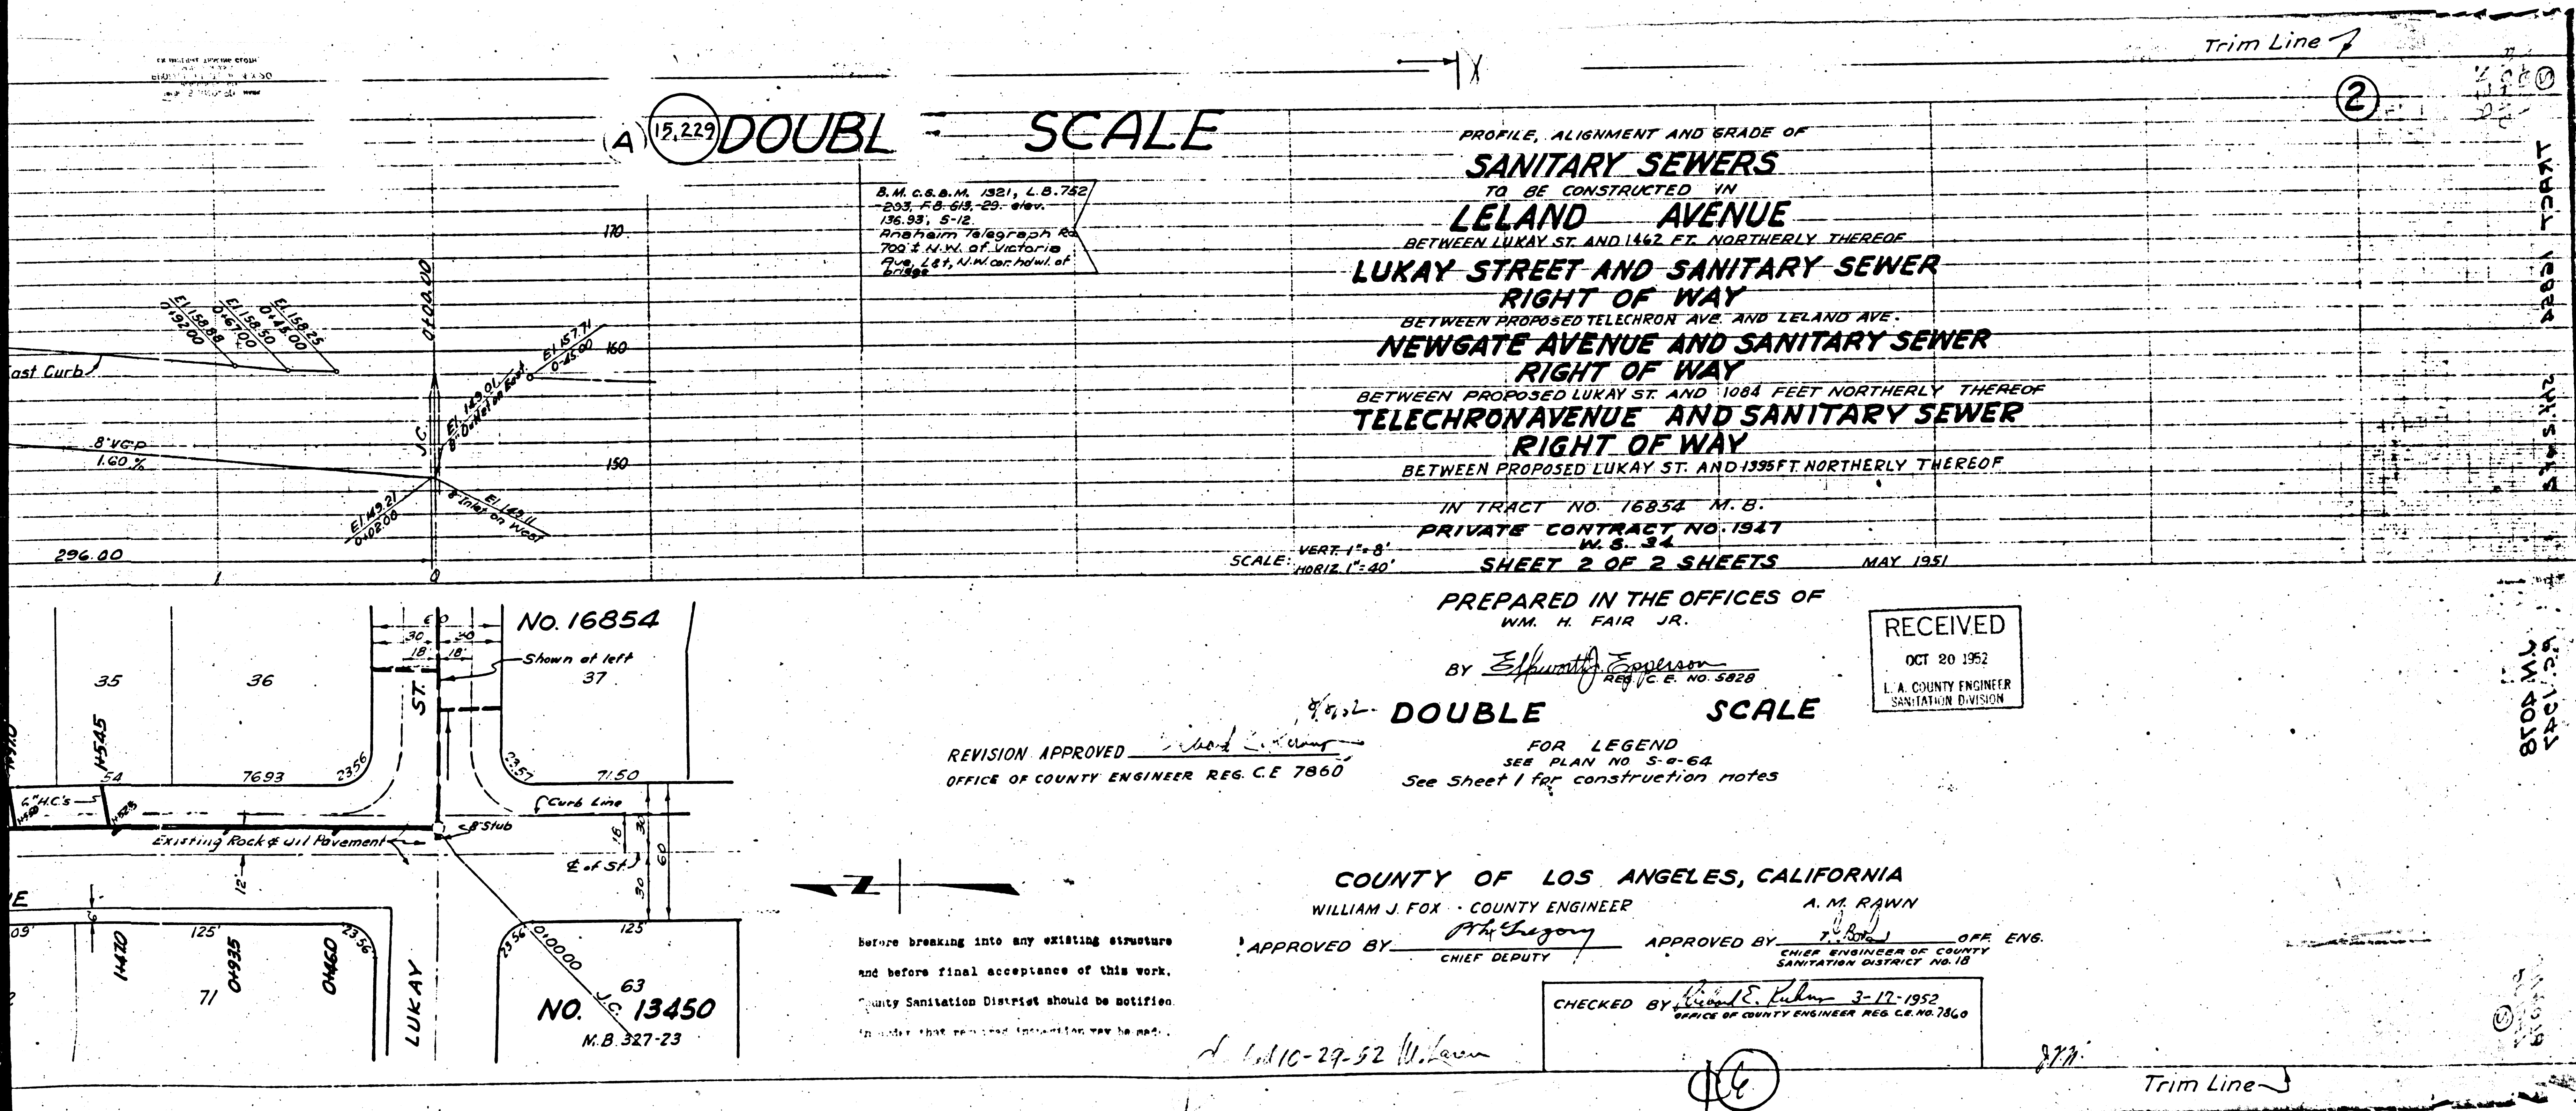 Trim Line
2
(A) 15,229 DOUBL SCALE
B.M. C.S.B.M. 1321, L.B. 752
-293, F.B. 613,-29. elev.
136.93', S-12.
Anaheim Telegraph Rd
700'± N.W. of Victoria
Ave, L&t, N.W. cor. hdwl. of
bridge
170
160
150
0+00.00
El. 158.88
0+92.00
El. 158.50
0+67.00
El. 158.25
0+45.00
El. 157.71
0-45.00
El. 149.01
8" Outlet on East
J.C.
ast Curb
8" V.C.P.
1.60 %
El. 149.21
0+02.00
El. 149.11
8" Inlet on West
296.00
1
0
PROFILE, ALIGNMENT AND GRADE OF
SANITARY SEWERS
TO BE CONSTRUCTED IN
LELAND AVENUE
BETWEEN LUKAY ST. AND 1462 FT. NORTHERLY THEREOF
LUKAY STREET AND SANITARY SEWER
RIGHT OF WAY
BETWEEN PROPOSED TELECHRON AVE. AND LELAND AVE.
NEWGATE AVENUE AND SANITARY SEWER
RIGHT OF WAY
BETWEEN PROPOSED LUKAY ST. AND 1084 FEET NORTHERLY THEREOF
TELECHRON AVENUE AND SANITARY SEWER
RIGHT OF WAY
BETWEEN PROPOSED LUKAY ST. AND 1395 FT. NORTHERLY THEREOF
IN TRACT NO. 16854 M.B.
PRIVATE CONTRACT NO. 1947
W.S. 34
SCALE: VERT. 1"=8'
HORIZ. 1"=40'
SHEET 2 OF 2 SHEETS MAY 1951
PREPARED IN THE OFFICES OF
WM. H. FAIR JR.
BY Ellsworth J. Epperson
REG. C.E. NO. 5828
DOUBLE SCALE
RECEIVED
OCT 20 1952
L. A. COUNTY ENGINEER
SANITATION DIVISION
REVISION APPROVED
OFFICE OF COUNTY ENGINEER REG. C.E 7860
FOR LEGEND
SEE PLAN NO S-a-64
See Sheet 1 for construction notes
NO. 16854
60
30 30
18' 18'
Shown at left
35
36
37
ST.
1+54.5
54
76.93
23.56
23.57
71.50
6" H.C's
Curb Line
8" Stub
Existing Rock & Oil Pavement
℄ of St.
18
30
60
30
12'
E
6'
09'
125'
23.56
23.56
125'
1+47.0
0+93.5
0+46.0
71
LUKAY
0+00.00
J.C.
63
NO. 13450
M.B. 327-23
Z
Before breaking into any existing structure
and before final acceptance of this work,
County Sanitation District should be notified
in order that required inspection may be made.
COUNTY OF LOS ANGELES, CALIFORNIA
WILLIAM J. FOX - COUNTY ENGINEER
A. M. RAWN
APPROVED BY
CHIEF DEPUTY
APPROVED BY OFF. ENG.
CHIEF ENGINEER OF COUNTY
SANITATION DISTRICT NO. 18
CHECKED BY Richard E. Kuhns 3-17-1952
OFFICE OF COUNTY ENGINEER REG. C.E. NO. 7860
10-29-52
Trim Line
TRACT 16854
P.C. 1947